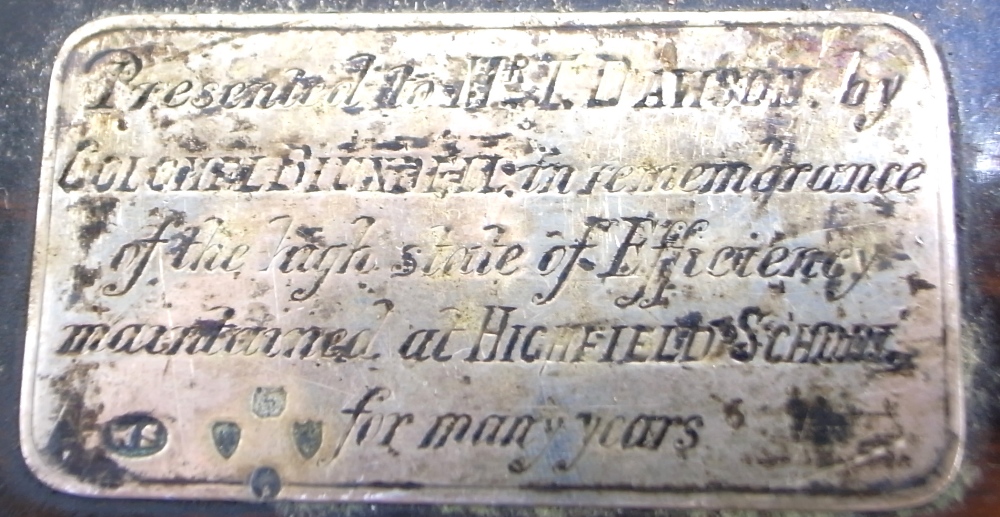 Presented to Mr. T. DAWSON. by
COLONEL in remembrance
of the high state of Efficiency
maintained at HIGHFIELD SCHOOL
for many years
WS